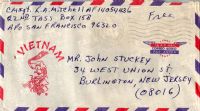 CMSgt. L.A. Mitchell AF14054836
62 MB TASS BOX 158
APO SAN FRANCISCO 96320
FREE
VIETNAM
MR. JOHN STUCKEY
34 WEST UNION ST
BURLINGTON, NEW JERSEY
(08016)